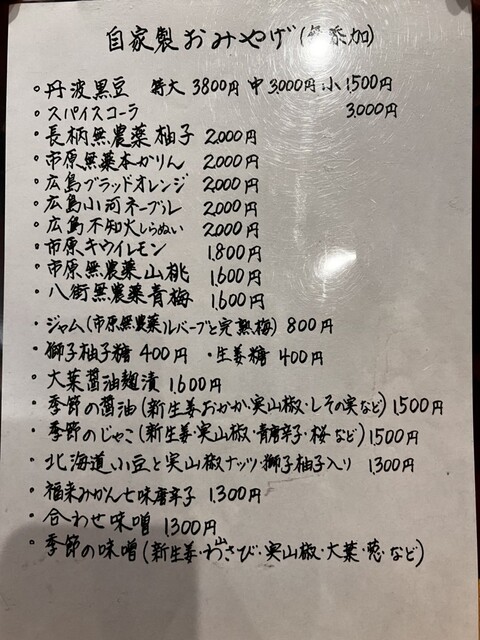 自家製おみやげ(無添加)
・丹波黒豆 特大3800円 中3000円 小1500円
・スパイスコーラ 3,000円
・長柄無農薬柚子 2,000円
・市原無薬本かりん 2,000円
・広島ブラッドオレンジ 2,000円
・広島小河ネーブル 2,000円
・広島不知火しらぬい 2,000円
・市原キウイレモン 1,800円
・市原無農薬山桃 1,600円
・八街無農薬青梅 1,600円
・ジャム(市原無農薬)ルバーブと完熟梅) 800円
・獅子柚子糖 400円 ・生姜糖 400円
・大葉醤油麹漬 1,600円
・季節の醤油(新生姜おかか・実山椒・しその実など) 1,500円
・季節のじゃこ(新生姜・実山椒・青唐辛子・桜など) 1,500円
・北海道小豆と実山椒ナッツ・獅子柚子入り 1,300円
・福来みかん七味唐辛子 1,300円
・合わせ味噌 1300円
・季節の味噌(新生姜・わさび・実山椒・大葉・葱・など)